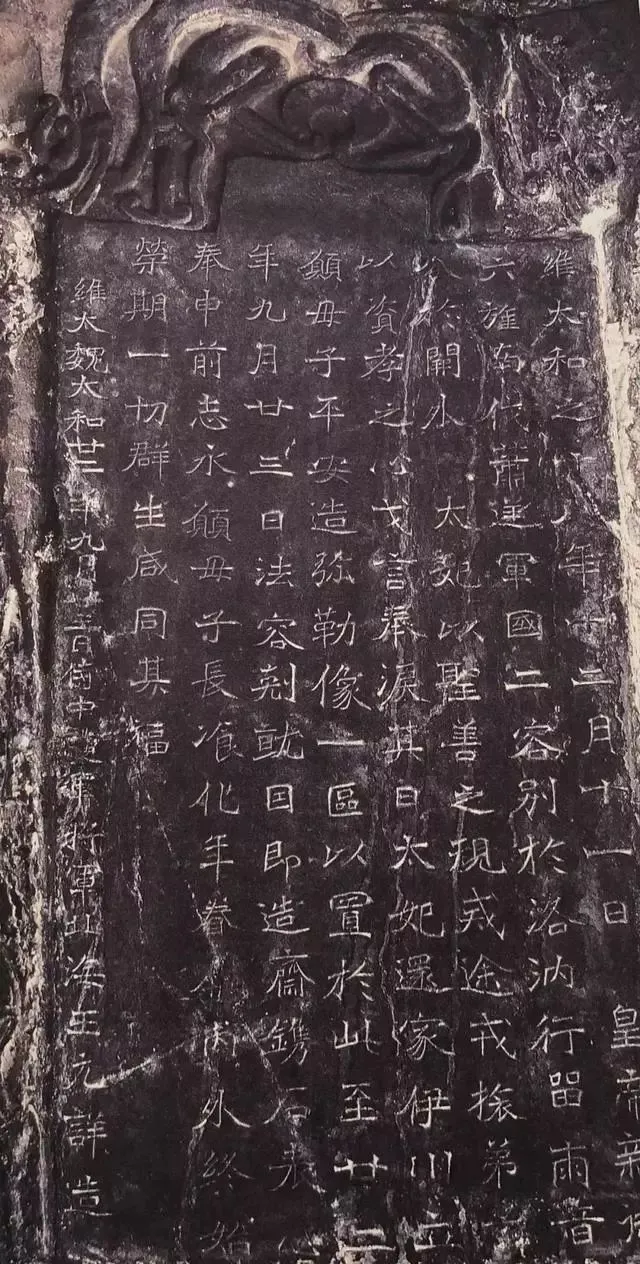 維太和之八年十二月十一日皇帝親御
六旌南伐蕭逆軍國二容別於洛汭行留雨音
分於闕外太妃以聖善之規戒途戎旅弟
以資孝之心戈言奉淚其日太妃還家伊川立
願母子平安造弥勒像一區以置於此至廿二
年九月廿三日法容剋就因即造齋鐫石表心
奉申前志永願母子長飡化年眷內外終始
榮期一切群生咸同其福
維太魏太和廿二年九月廿三日侍中護軍將軍北海王元詳造